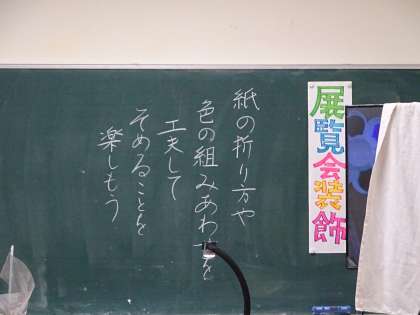 展覧会装飾
紙の折り方や
色の組みあわせを
工夫して
そめることを
楽しもう